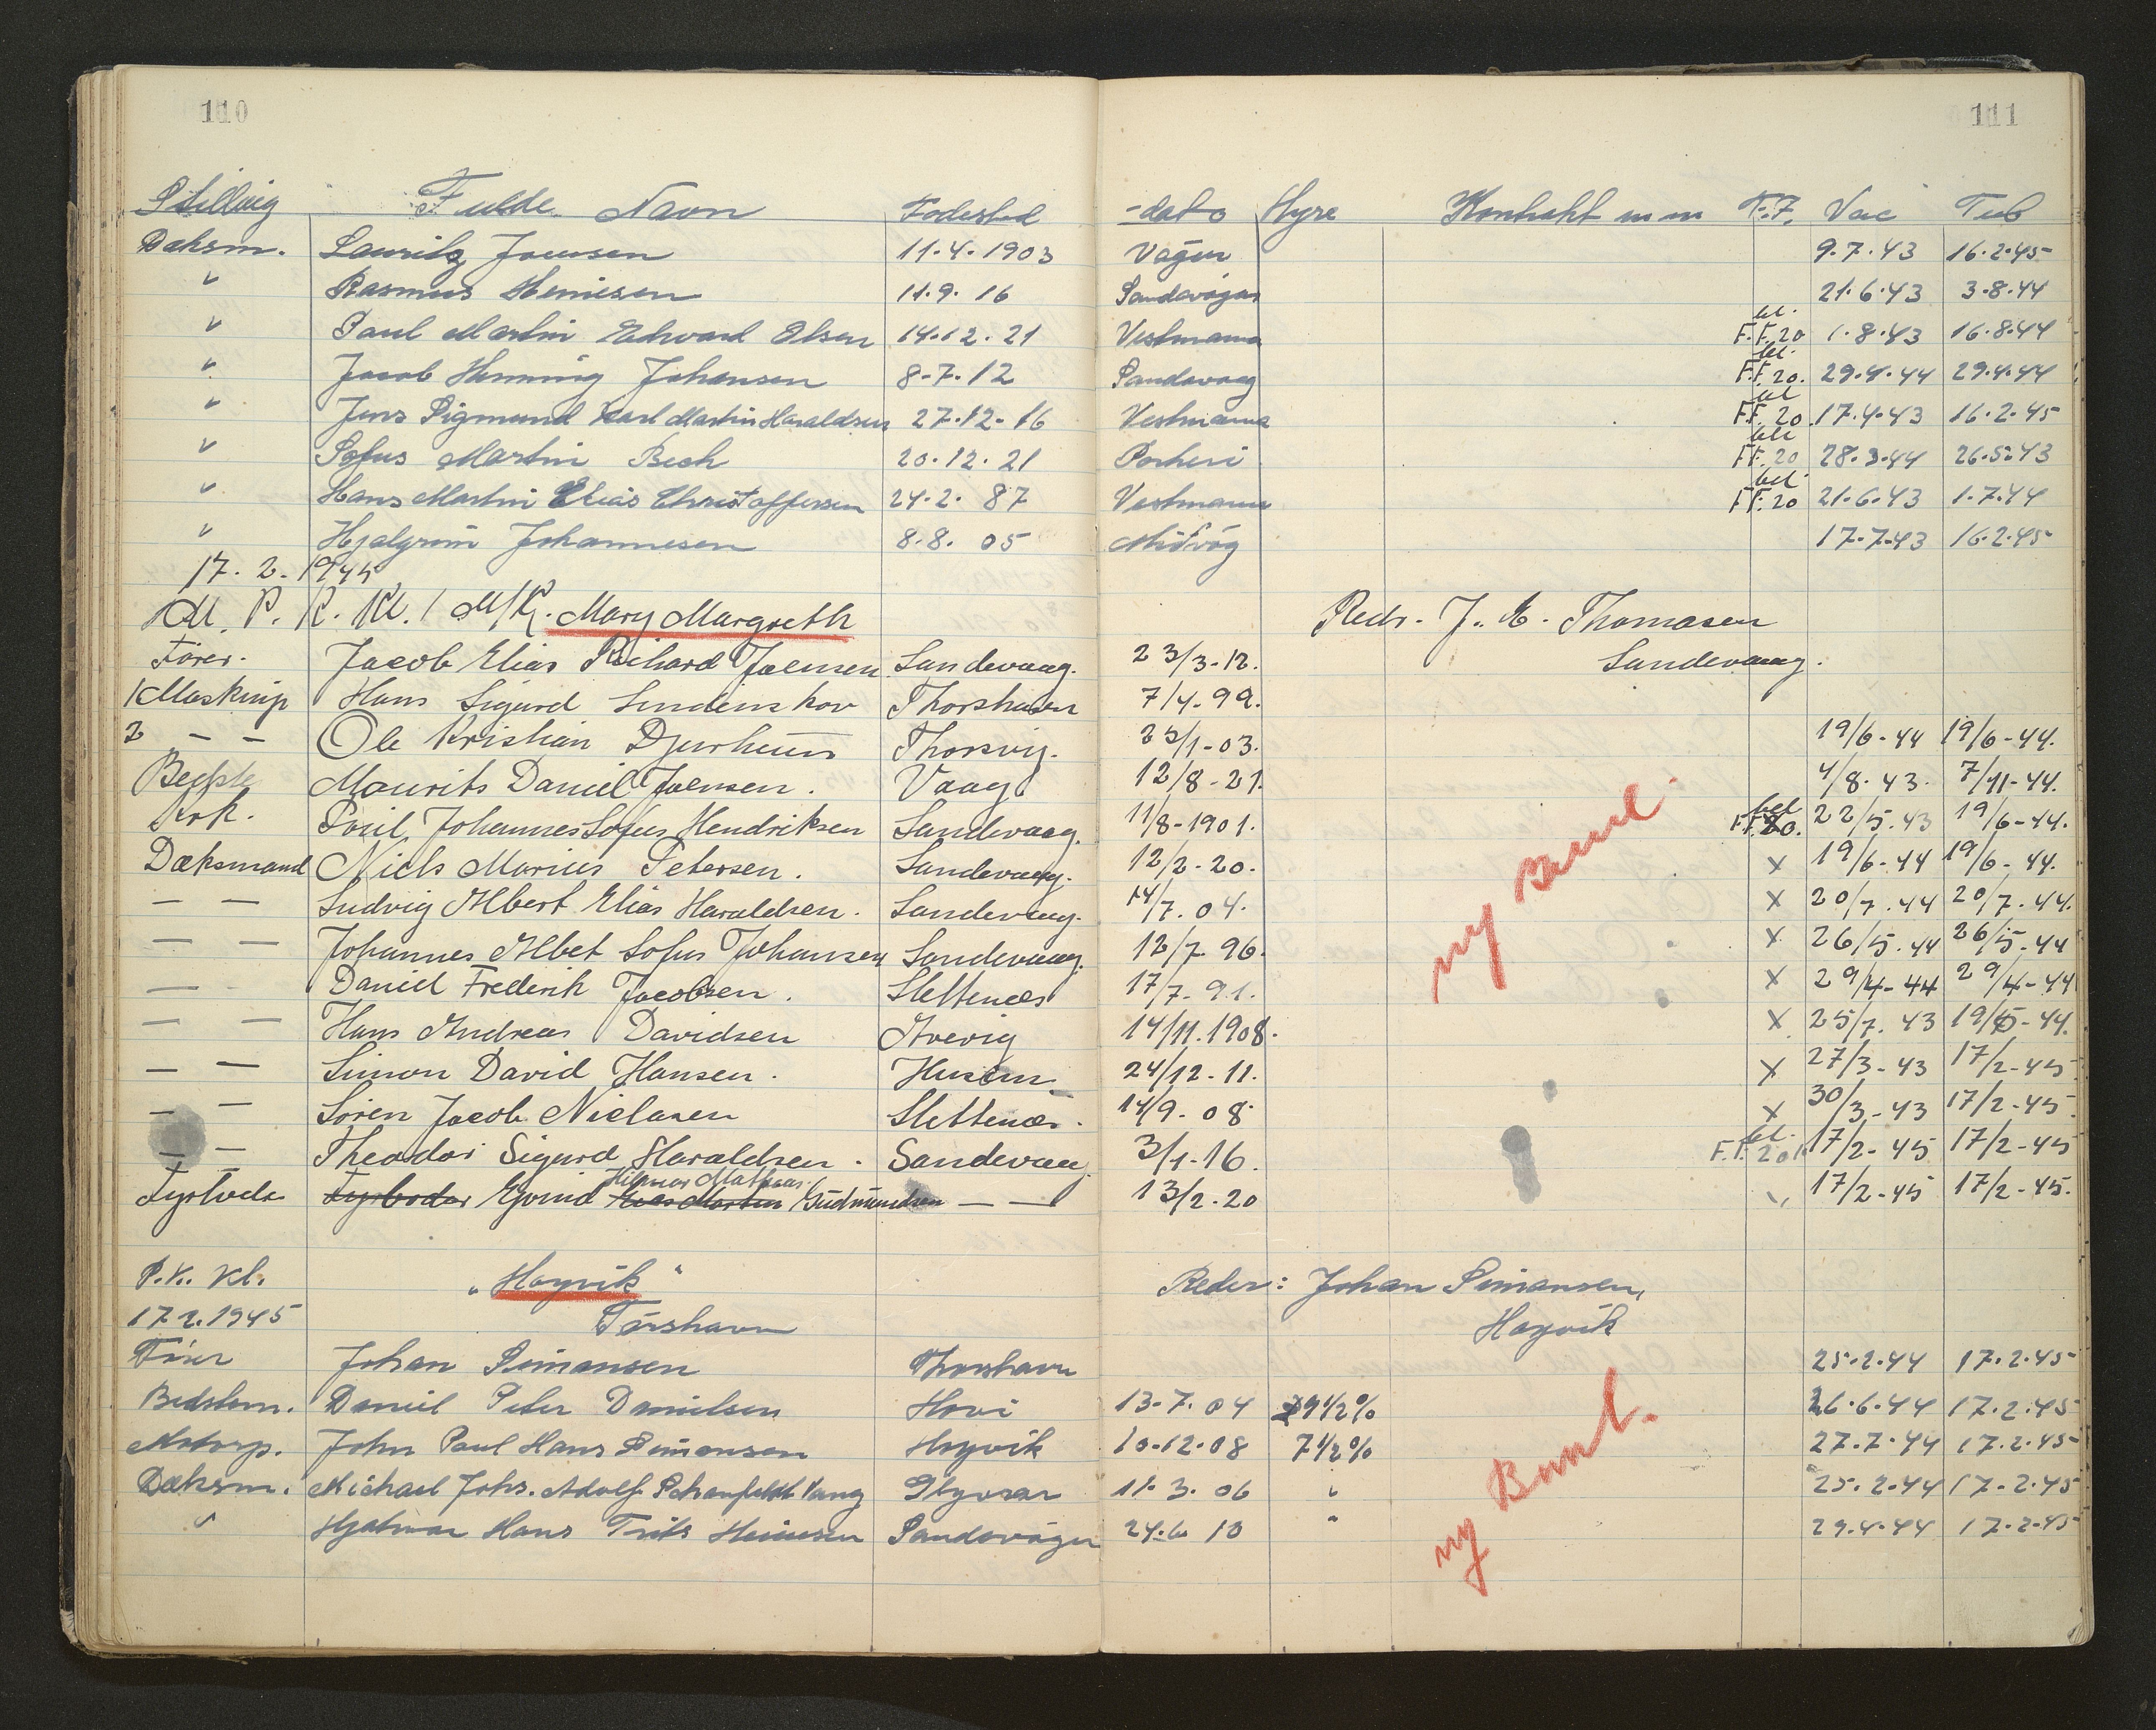 110
111
Stilling Fulde Navn Fødested -dato Hyre Kontrakt m m F.F. Vac Tub
Dæksm. Lauritz Joensen 11.4.1903 Vágur 9.7.43 16.2.45
" Rasmus Heinesen 11.9.16 Sandavágur 21.6.43 3.8.44
" Paul Martin Edvard Olsen 14.12.21 Vestmanna bet. F.F.20 1.8.43 16.8.44
" Jacob Henning Johansen 8-7.12 Sandavaag bet. F.F.20. 29.4.44 29.4.44
" Jens Sigmund Karl Martin Haraldsen 27.12.16 Vestmanna bet F.F.20 17.4.43 16.2.45
" Sofus Martin Bech 20.12.21 Porkeri bet F.F.20 28.3.44 26.5.43
" Hans Martin Elias Christoffersen 24.2.87 Vestmanna bet. F.F.20 21.6.43 1.7.44
" Hjalgrim Johannesen 8.8.05 Miðvág 17.7.43 16.2.45
17.2.1945
M. P. R. Kl. / M/K. Mary Margreth Redr. J. E. Thomasen
Sandevaag.
Fører. Jacob Elias Richard Joensen Sandevaag. 23/3-12.
1 Maskinp Hans Sigurd Lindenskov Thorshavn 7/4-99.
2 — — Ole Kristian Djurhuus Thorsvig. 25/1-03. 19/6-44 19/6-44.
Bedste Maurits Daniel Joensen. Vaag 12/8-21. 4/8.43. 7/11-44.
Kok. Poul Johannes Sofus Hendriksen Sandevaag. 11/8-1901. bet F.F.20. 22/5.43 19/6-44.
Dæksmand Niels Marius Petersen. Sandevaag. 12/2-20. x 19/6-44 19/6-44.
— — Ludvig Albert Elias Haraldsen. Sandevaag. 14/7.04. x 20/7.44 20/7.44.
— — Johannes Albet Sofus Johansen Sandevaag. 12/7 96. x 26/5.44 26/5-44
— — Daniel Frederik Jacobsen. Slettenæs 17/7-91. x 29/4-44 29/4-44
— — Hans Andreas Davidsen Avevig 14/11.1908. x 25/7.43 19/5-44.
— — Simon David Hansen. Husum 24/12-11. x 27/3-43 17/2-45
— — Sören Jacob Nielasen Slettenæs. 14/9-08. x 30/3-43 17/2-45.
— — Theodor Sigurd Haraldsen. Sandevaag 3/1-16. bet. F.F.20 17/2-45 17/2-45
Hilmar Mathias
Fyrbøder Ejvind Elias Martin Gudmundsen — — 13/2.20 " 17/2-45 17/2-45.
ny Baand.
P.K. Kl. "Hoyvík" Reder: Johan Simonsen,
17.2.1945 Tórshavn Hoyvík
Fører Johan Simonsen Thorshavn 25.2.44 17.2.45
Bedstem. Daniel Peter Danielsen Hovi 13-7.04 9 1/2% 26.6.44 17.2.45
Motorp. John Paul Hans Simonsen Hoyvík 10.12.08 7 1/2% 27.7.44 17.2.45
Dæksm. Michael Johs. Adolf Vang Glyvrar 11.3.06 " 25.2.44 17.2.45
" Hjalmar Hans Frits Heinesen Sandavágur 24.6 10 " 29.4.44 17.2.45
ny